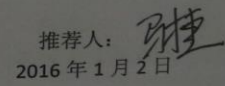 推荐人：
2016年1月2日